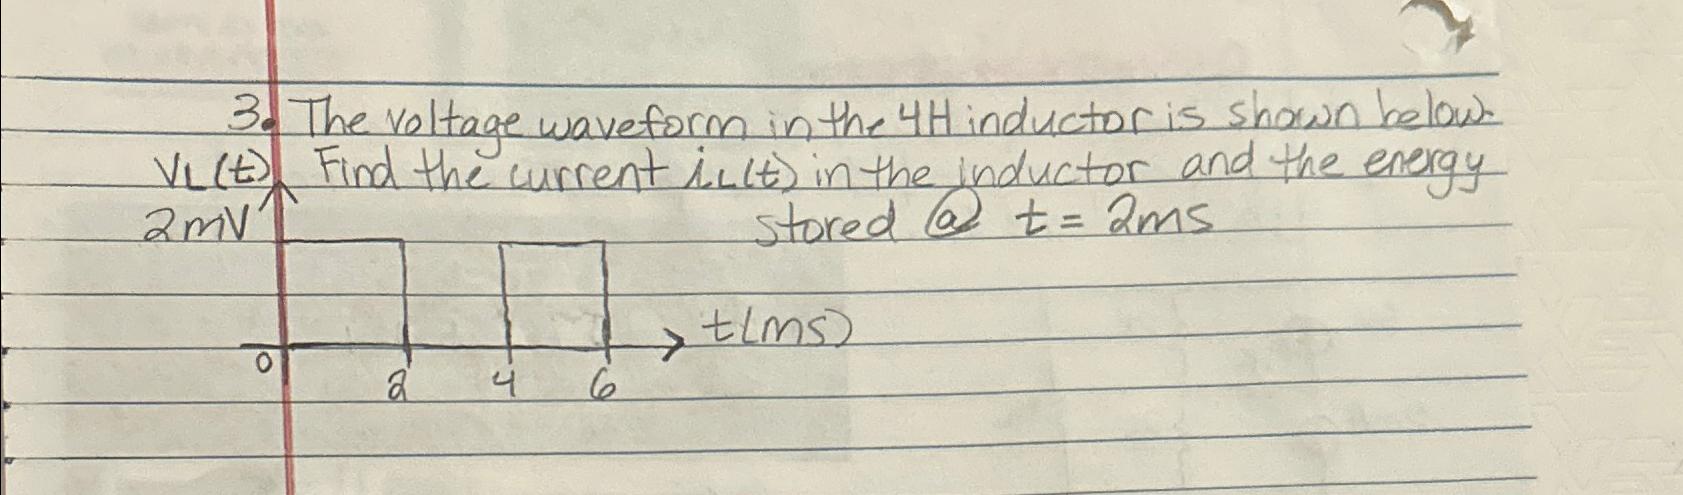 3. The voltage waveform in the 4H inductor is shown below.
VL(t) Find the current iL(t) in the inductor and the energy
2mV stored @ t = 2ms
t(ms)
0 2 4 6